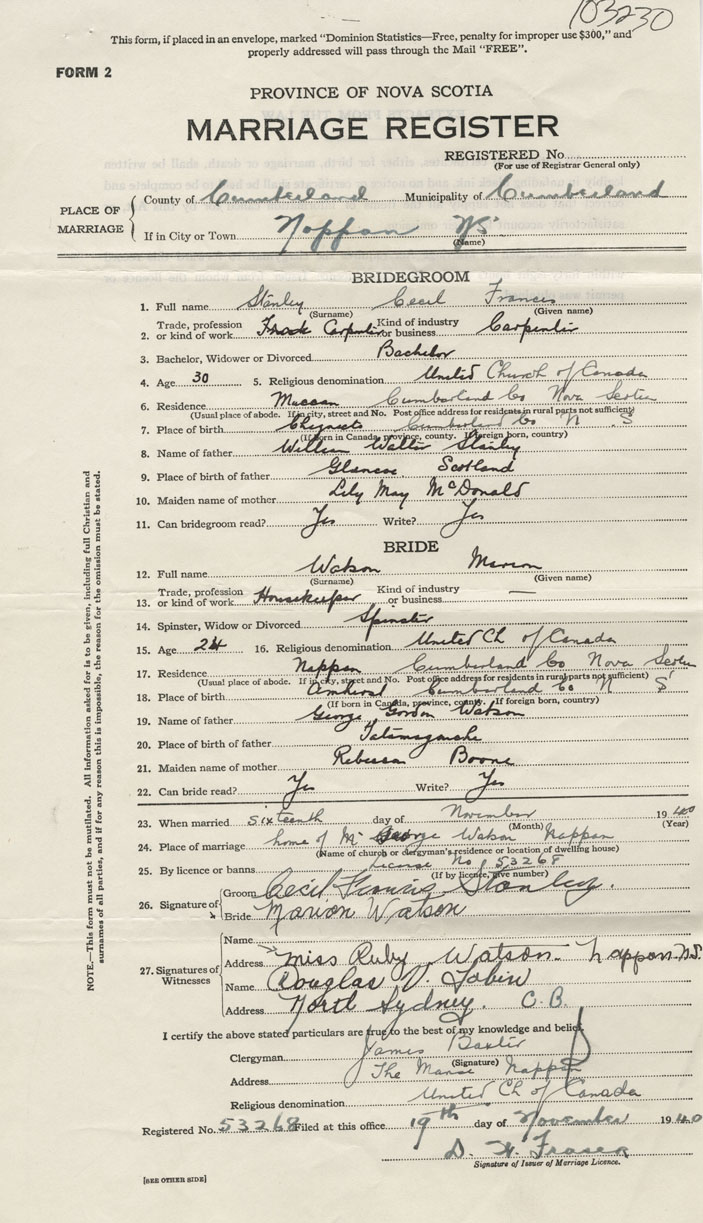 103230
This form, if placed in an envelope, marked "Dominion Statistics—Free, penalty for improper use $300," and
properly addressed will pass through the Mail "FREE".
FORM 2
PROVINCE OF NOVA SCOTIA
MARRIAGE REGISTER
REGISTERED No.
(For use of Registrar General only)
PLACE OF MARRIAGE
County of Cumberland Municipality of Cumberland
If in City or Town Nappan NS
(Name)
BRIDEGROOM
1. Full name Stanley Cecil Francis
(Surname) (Given name)
2. Trade, profession or kind of work Carpenter Kind of industry or business Carpenter
3. Bachelor, Widower or Divorced Bachelor
4. Age 30 5. Religious denomination United Church of Canada
6. Residence Maccan Cumberland Co Nova Scotia
(Usual place of abode. If in city, street and No. Post office address for residents in rural parts not sufficient)
7. Place of birth Chignecto Cumberland Co N S
(If born in Canada, province, county. If foreign born, country)
8. Name of father William Walter Stanley
9. Place of birth of father Glencoe Scotland
10. Maiden name of mother Lily May McDonald
11. Can bridegroom read? Yes Write? Yes
BRIDE
12. Full name Watson Marion
(Surname) (Given name)
13. Trade, profession or kind of work Housekeeper Kind of industry or business —
14. Spinster, Widow or Divorced Spinster
15. Age 24 16. Religious denomination United Ch of Canada
17. Residence Nappan Cumberland Co Nova Scotia
(Usual place of abode. If in city, street and No. Post office address for residents in rural parts not sufficient)
18. Place of birth Amherst Cumberland Co N S
(If born in Canada, province, county. If foreign born, country)
19. Name of father George Gordon Watson
20. Place of birth of father Tatamagouche
21. Maiden name of mother Rebecca Boone
22. Can bride read? Yes Write? Yes
23. When married sixteenth day of November 1940
(Month) (Year)
24. Place of marriage home of Mr George Watson Nappan
(Name of church or clergyman's residence or location of dwelling house)
25. By licence or banns License No 53268
(If by licence, give number)
26. Signature of
Groom Cecil Francis Stanley.
Bride Marion Watson
27. Signatures of Witnesses
Name
Address Miss Ruby Watson - Nappan. N.S.
Name Douglas V. Tobin
Address North Sydney. C.B.
I certify the above stated particulars are true to the best of my knowledge and belief.
Clergyman James Baxter
(Signature)
Address The Manse Nappan
Religious denomination United Ch of Canada
Registered No. 53268 Filed at this office 19th day of November 1940
D. W. Fraser
Signature of Issuer of Marriage Licence.
[SEE OTHER SIDE]
NOTE.—This form must not be mutilated. All information asked for is to be given, including full Christian and
surnames of all parties, and if for any reason this is impossible, the reason for the omission must be stated.